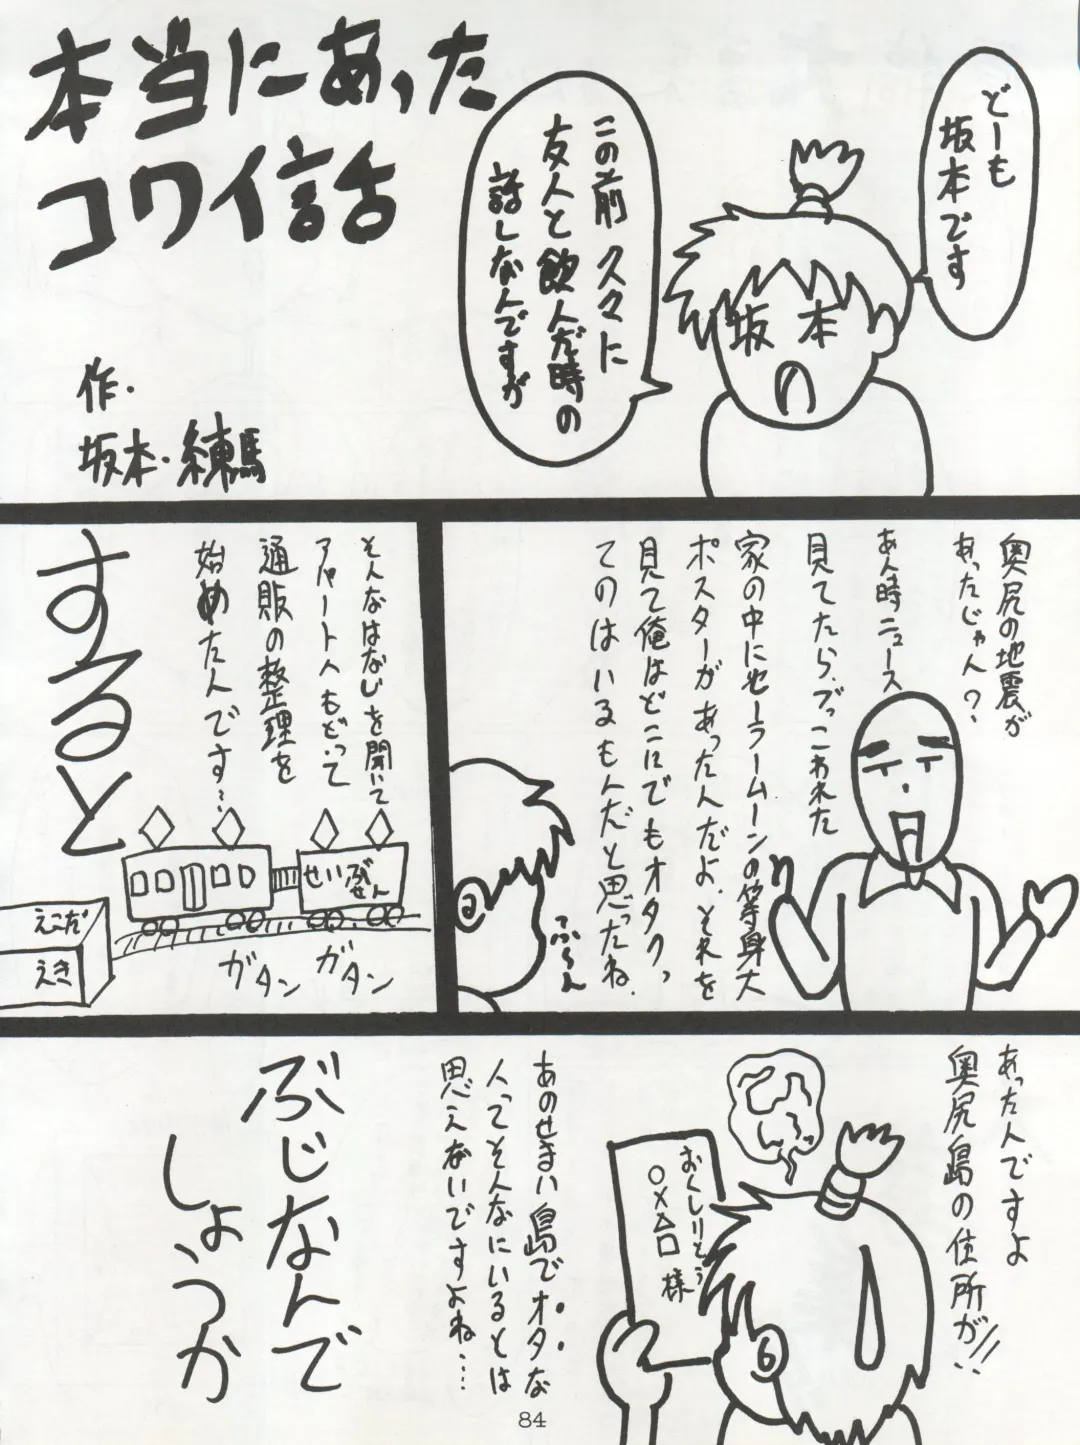 本当にあった
コワイ話
作・
坂本・練馬
どーも
坂本です
この前久々に
友人と飲んだ時の
話しなんですが
坂本
奥尻の地震が
あったじゃん?
あん時ニュース
見てたら、ぶっこわれた
家の中にセーラームーンの等身大
ポスターがあったんだよ、それを
見て俺はどこにでもオタクっ
てのはいるもんだと思ったね.
ふーん
そんなはなしを聞いて
アパートへもどって
通販の整理を
始めたんです…
すると
せいぶせん
えこだ
えき
ガタン
ガタン
あったんですよ
奥尻島の住所が!!
おくしりとう
○×△□様
あのせまい島でオタな
人ってそんなにいるとは
思えないですよね….
ぶじなんで
しょうか
84